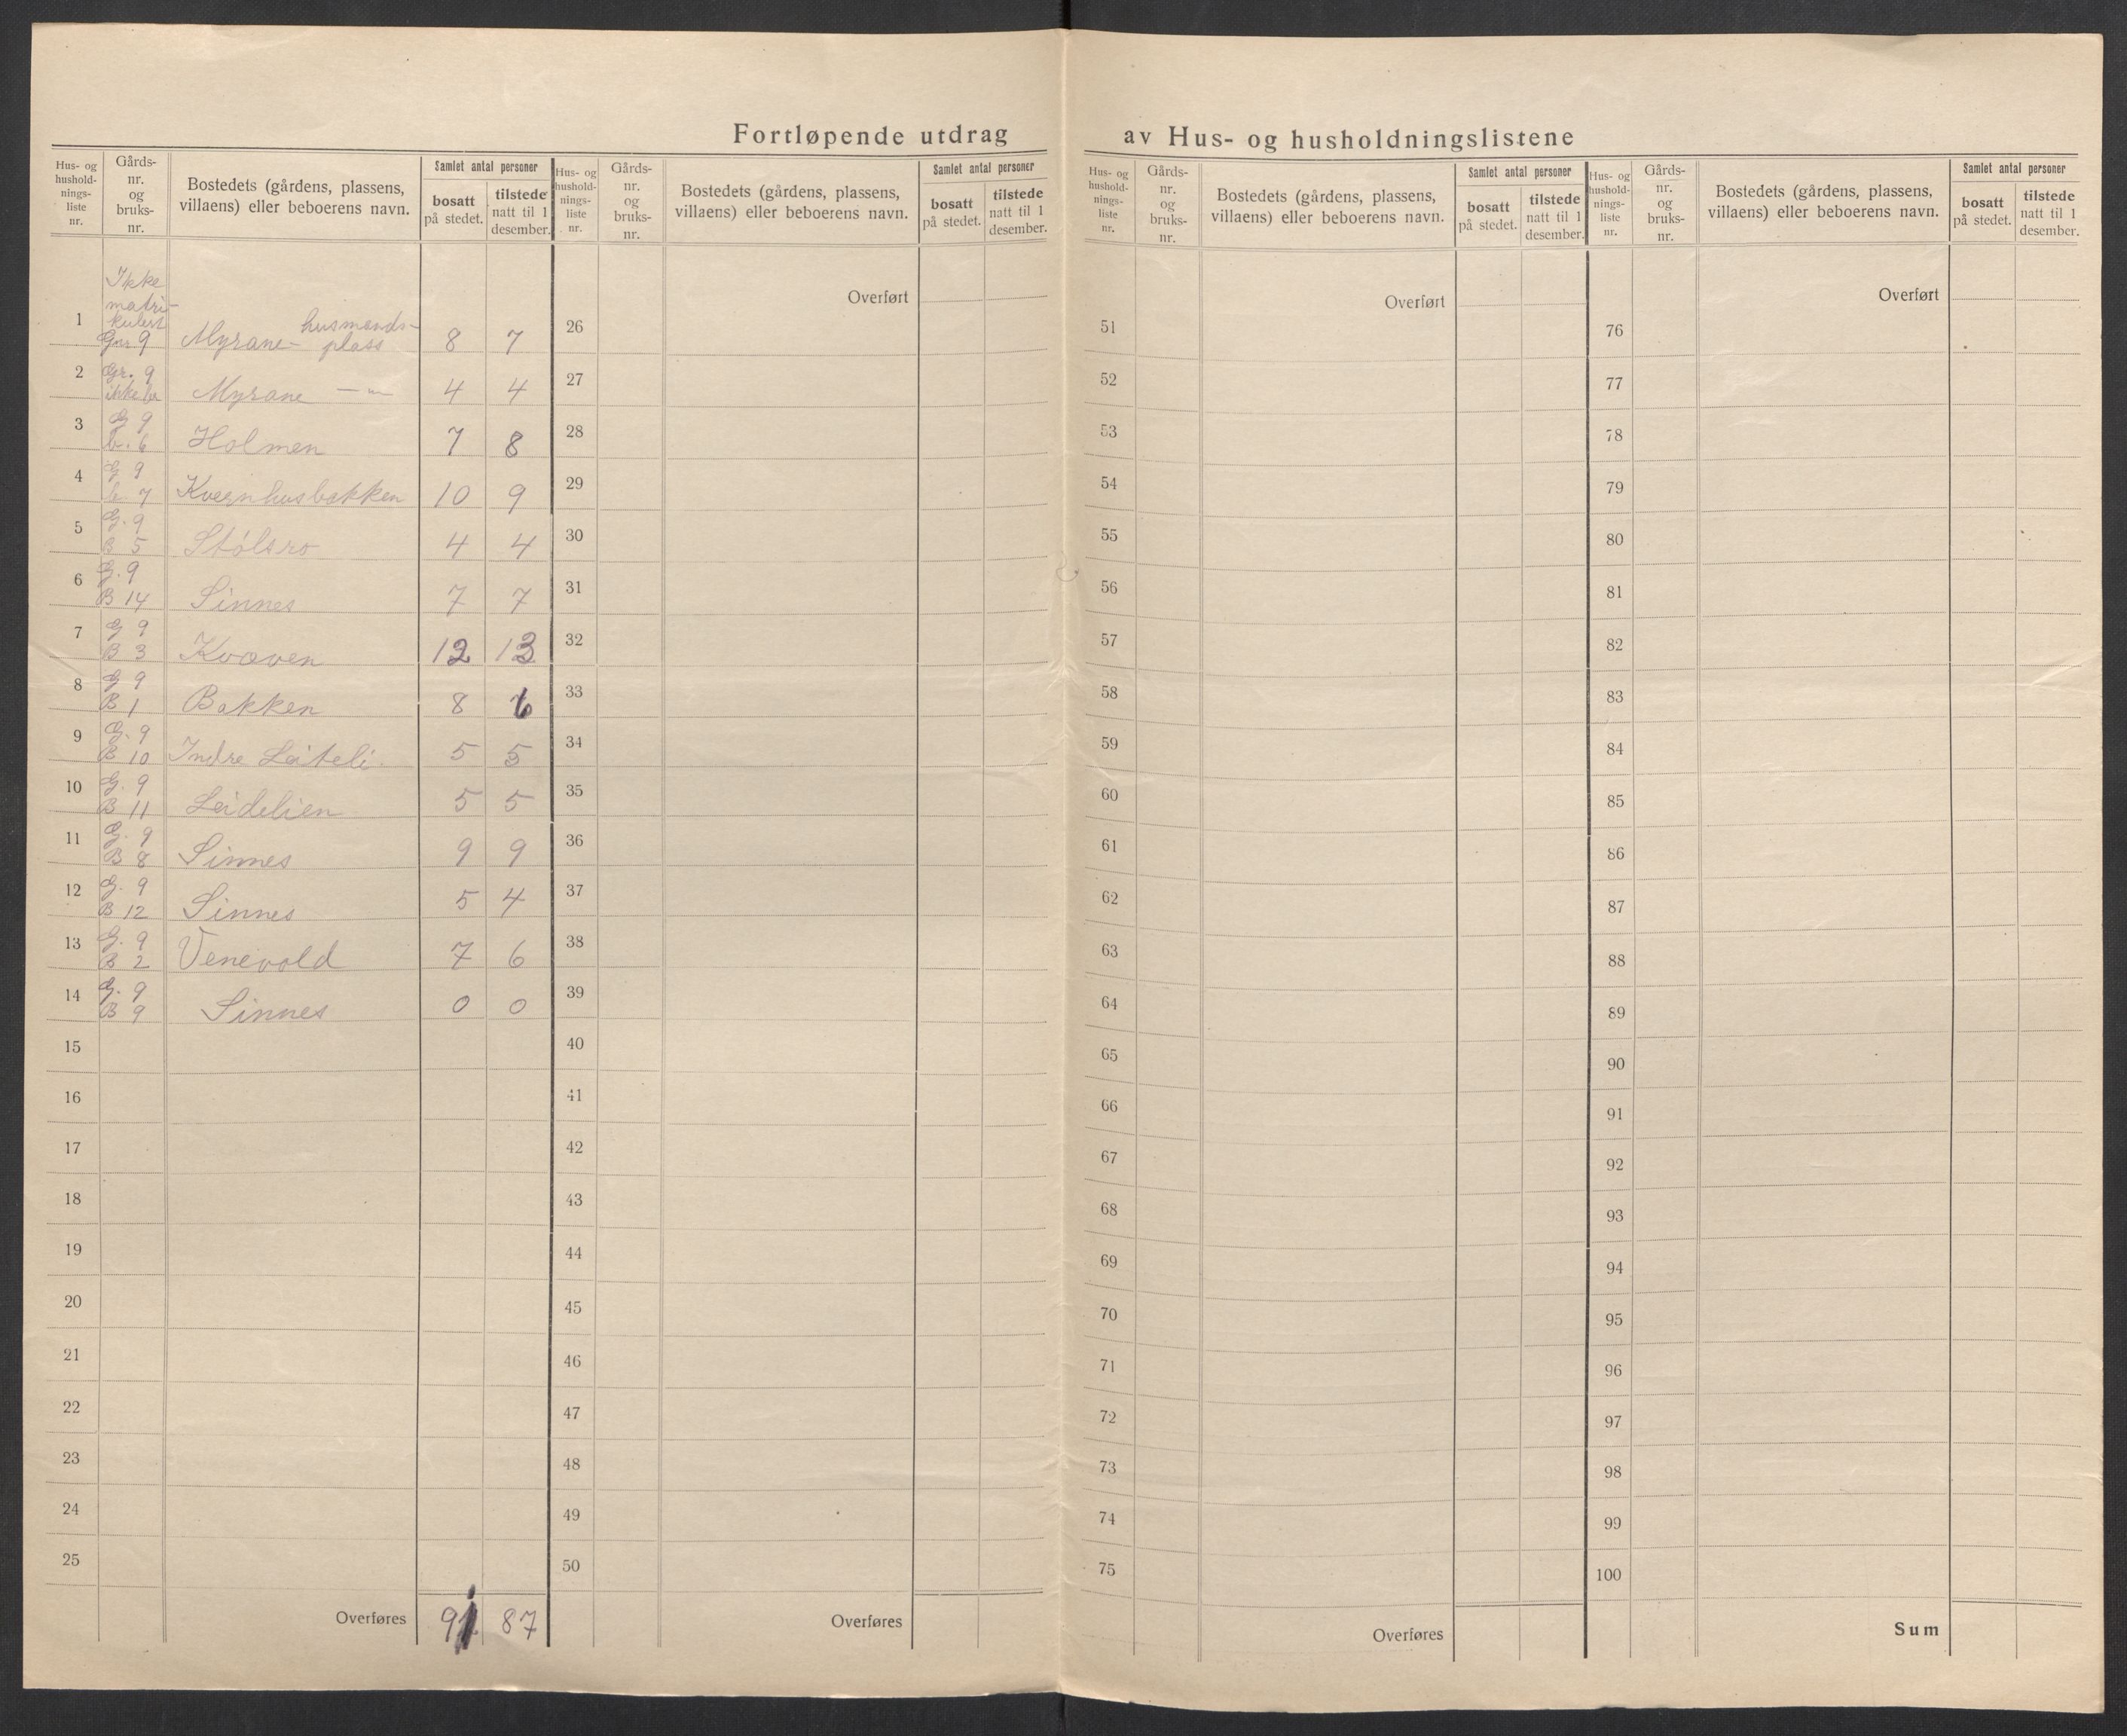 Fortløpende utdrag av Hus- og husholdningslistene
Hus- og hushold-nings-liste nr. Gårds-nr. og bruks-nr. Bostedets (gårdens, plassens, villaens) eller beboerens navn. Samlet antal personer bosatt på stedet. tilstede natt til 1 desember.
1 Ikke matri-kulert Gnr 9 Myrane - husmands-plass 8 7
2 Gr. 9 Myrane — " — 4 4
3 G 9 b. 6 Holmen 7 8
4 G 9 b 7 Kvernhusbakken 10 9
5 G. 9 B 5 Stólsro 4 4
6 G. 9 B 14 Sinnes 7 7
7 G 9 B 3 Kvæven 12 13
8 G 9 B 1 Bakken 8 6
9 G. 9 B 10 Indre Leiteli 5 5
10 G. 9 B 11 Leidelien 5 5
11 G. 9 B 8 Sinnes 9 9
12 G. 9 B 12 Sinnes 5 4
13 G. 9 B 2 Venevold 7 6
14 G. 9 B 9 Sinnes 0 0
15
16
17
18
19
20
21
22
23
24
25
Overføres 91 87
Hus- og hushold-nings-liste nr. Gårds-nr. og bruks-nr. Bostedets (gårdens, plassens, villaens) eller beboerens navn. Samlet antal personer bosatt på stedet. tilstede natt til 1 desember.
Overført
26
27
28
29
30
31
32
33
34
35
36
37
38
39
40
41
42
43
44
45
46
47
48
49
50
Overføres
Hus- og hushold-nings-liste nr. Gårds-nr. og bruks-nr. Bostedets (gårdens, plassens, villaens) eller beboerens navn. Samlet antal personer bosatt på stedet. tilstede natt til 1 desember.
Overført
51
52
53
54
55
56
57
58
59
60
61
62
63
64
65
66
67
68
69
70
71
72
73
74
75
Overføres
Hus- og hushold-nings-liste nr. Gårds-nr. og bruks-nr. Bostedets (gårdens, plassens, villaens) eller beboerens navn. Samlet antal personer bosatt på stedet. tilstede natt til 1 desember.
Overført
76
77
78
79
80
81
82
83
84
85
86
87
88
89
90
91
92
93
94
95
96
97
98
99
100
Sum